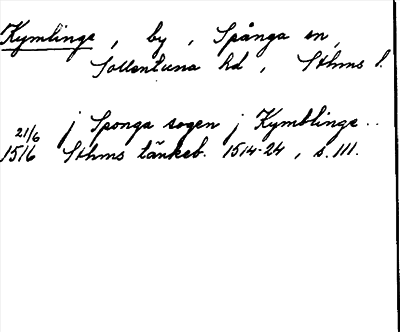 Kymlinge, by, Spånga sn,
Sollentuna hd, Sthms l.
21/6 j Sponga sogen j Kymblinge..
1516 Sthms tänkeb. 1514-24, s. 111.